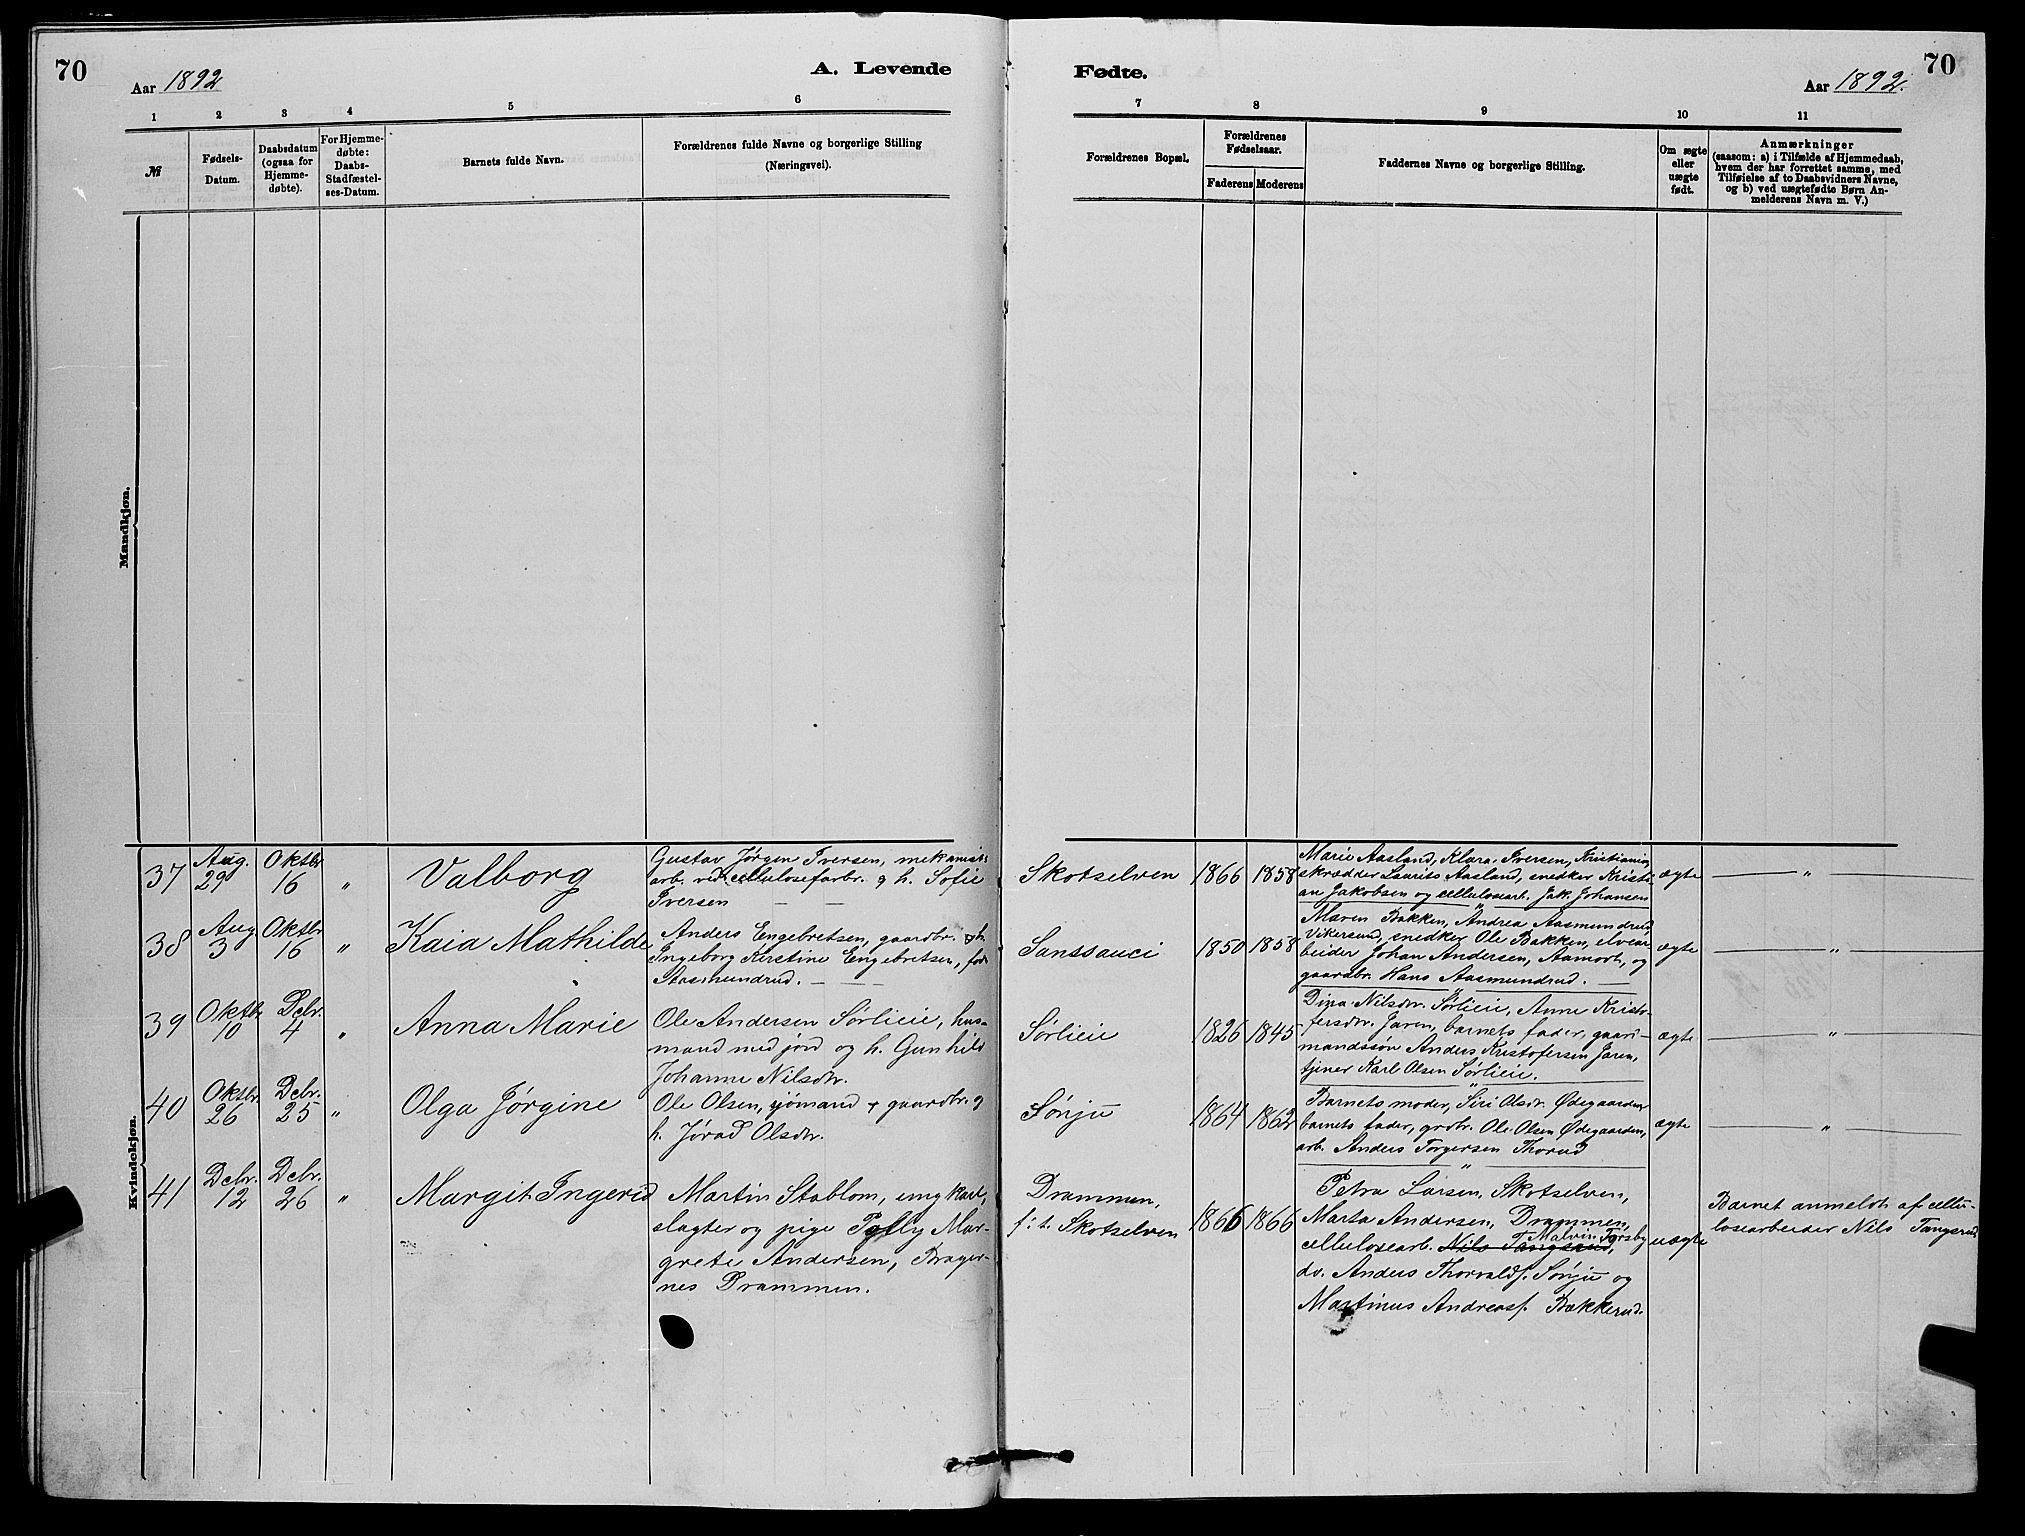 70
Aar 1892
A. Levende
Fødte.
Aar 1892.
70
1 2 3 4 5 6
7 8 9 10 11
№
Fødsels-
Datum.
Daabsdatum
(ogsaa for
Hjemme-
døbte).
For Hjemme-
døbte:
Daabs-
Stadfæstel-
ses-Datum.
Barnets fulde Navn.
Forældrenes fulde Navne og borgerlige Stilling
(Næringsvei).
Forældrenes Bopæl.
Forældrenes
Fødselsaar.
Faderens
Moderens
Faddernes Navne og borgerlige Stilling.
Om ægte
eller
uægte
født.
Anmærkninger
(saasom: a) i Tilfælde af Hjemmedaab,
hvem der har forrettet samme, med
Tilføielse af to Daabsvidners Navne,
og b) ved uægtefødte Børn An-
melderens Navn m. V.)
Mandkjøn.
Kvindekjøn.
37
Aug.
29
Oktbr
16
"
Valborg
Gustav Jørgen Iversen, mekanisk
arb. ved cellulosefabr. g h. Sofie
Iversen — —
Skotselven
1866
1858
Marie Aasland, Klara Iversen, Kristiania,
skrædder Laurits Aasland, snedker Kristi-
an Jakobsen og cellulosearb. Jak. Johansen
ægte
"
38
Aug.
3
Oktbr
16
"
Kaia Mathilde
Anders Engebretsen, gaardbr. & h.
Ingeborg Kirstine Engebretsen, født
Aasmundrud. — —
Sanssauci
1850
1858
Maren Bakken, Andrea Aasmundrud
Vikersund, snedker Ole Bakken, elvear-
beider Johan Andersen, Aamodt, og
gaardbr. Hans Aasmundrud. —
ægte
"
39
Oktbr
10
Debr.
4
"
Anna Marie
Ole Andersen Sørlieie, hus-
mand med jord og h. Gunhild
Johanne Nilsdtr.
Sørlieie
1826
1845
Dina Nilsdtr. Sørlieie, Anne Kristo-
fersdtr. Jaren, barnets fader, gaard-
mandssøn Anders Kristofersen Jaren,
tjener Karl Olsen Sørlieie.
ægte
"
40
Oktbr
26
Debr.
25
"
Olga Jørgine
Ole Olsen, sjømand & gaardbr. g
h. Jørad Olsdtr.
Sønju
1864
1862
Barnets moder, Siri Olsdr. Ødegaarden
barnets fader, grdbr. Ole Olsen Ødegaarden,
arb. Anders Torgersen Thorud
ægte
"
41
Debr.
12
Debr.
26
"
Margit Ingerid
Martin Stablom, ungkarl,
slagter og pige Polly Mar-
grete Andersen, Brager-
nes Drammen.
Drammen,
f: t. Skotselven
1866
1866
Petra Larsen, Skotselven,
Marta Andersen, Drammen,
Malvin Forsby
cellulosearb. Nils Tangsrud,
do. Anders Thorvalds. Sønju og
Martinus Andreas. Bækkerud.
uægte
Barnet anmeldt af cellu-
losearbeider Nils Tangsrud